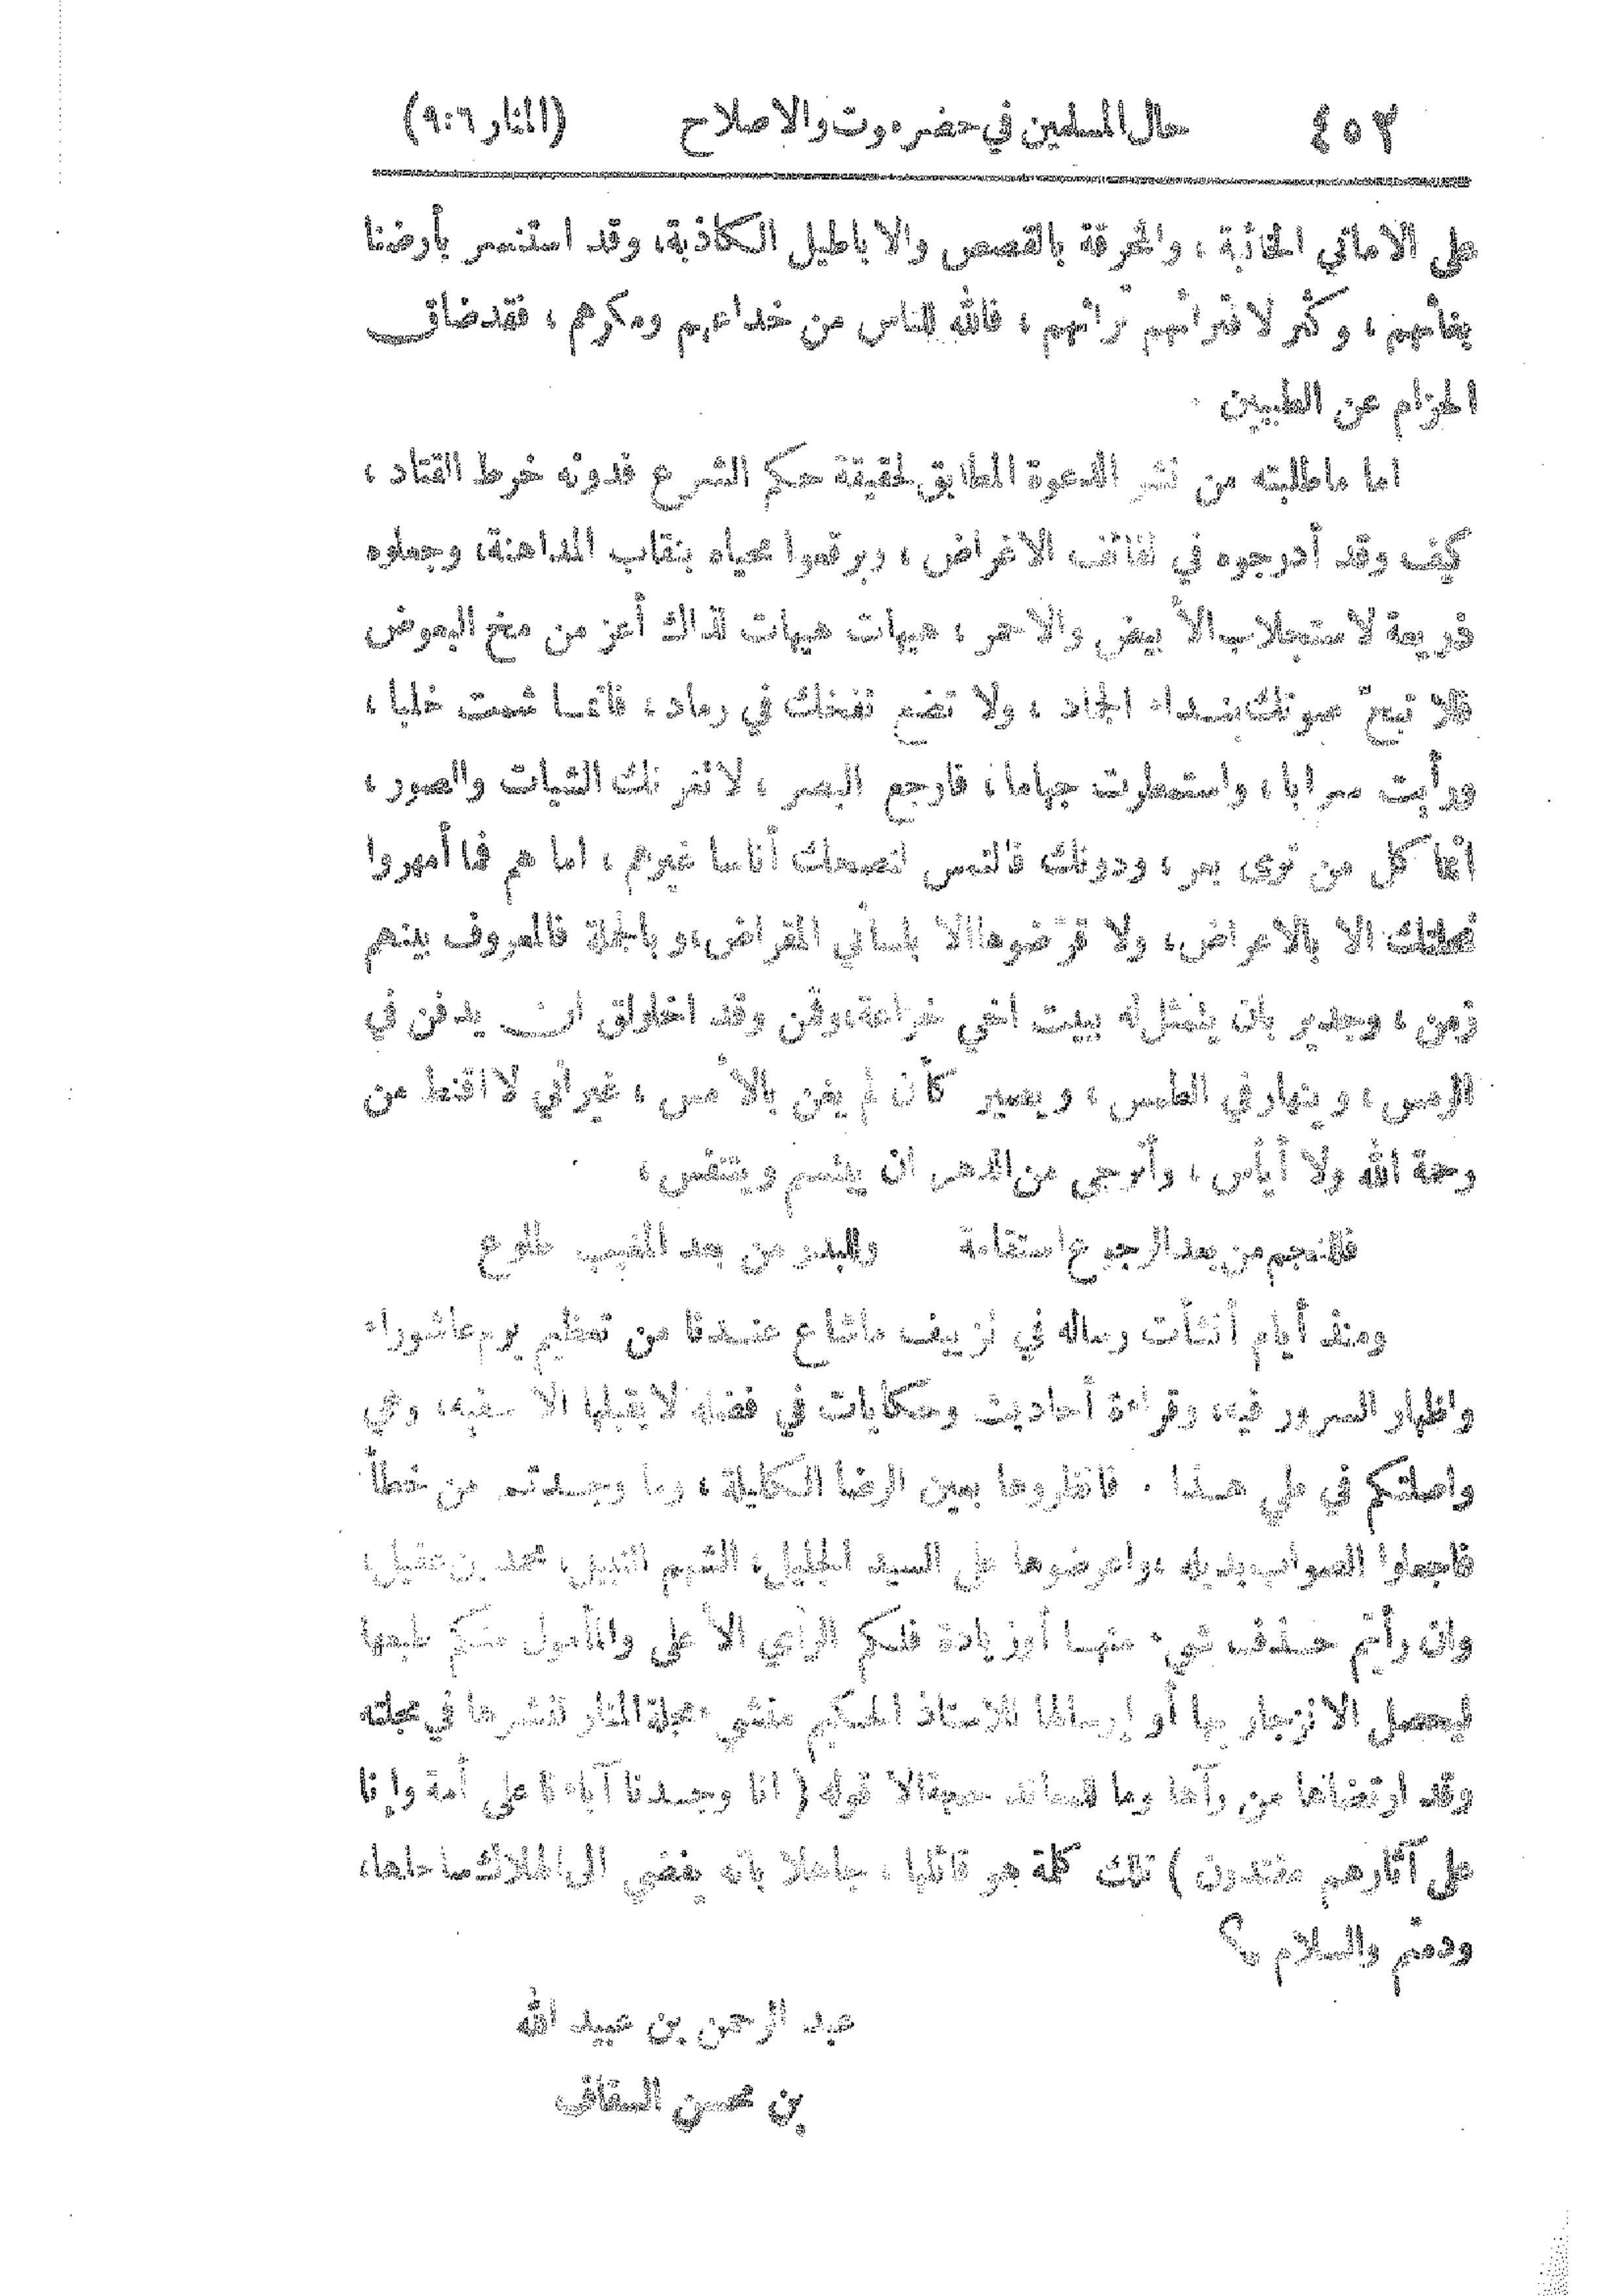 ٤٥٢ حال المسلمين في حضرموت والاصلاح (المنار ٩:٦)
على الاماني الخائبة ، والخرقة بالقصص والاباطيل الكاذبة، وقد استنسر بأرضنا
بغاثهم ، وكثر لا فترائهم ، فالله للناس من خداعهم ومكرهم ، فقد ضاق
الحزام عن الطبيين
اما ماطلبته من نشر الدعوة المطابق لحقيقة حكم الشرع فدونه خرط القتاد ،
كيف وقد أدرجوه في لفائف الاغراض ، وبرقعوا محياه بنقاب المداهنة، وجعلوه
ذريعة لاستجلاب الأبيض والاحمر ، هيهات هيهات لذاك أعز من مخ البعوض
فلا تبحّ صوتك بنداء الجماد ، ولا تضع نفخك في رماد ، فانما شمت خلبا ،
ورأيت سرابا ، واستمطرت جهاما ، فارجع البصر ، لاتغرنك الشيات والصور ،
انما كل من ترى بقر ، ودونك فالتمس لنصحك أناسا غيرهم ، اما هم فما أمهروا
الا بالاعراض، ولا قرّضوها الا بلسانى المقراض، وبالجملة فالمعروف بينهم
زمن ، وجدير بان يتمثل له ببيت اخي خزاعة، وقمن وقد اخلولق ان يدفن في
الرمس ، وينهار في الطمس ، ويصير كأن لم يغن بالأمس ، غير أني لا اقنط من
رحمة الله ولا أيأس ، وأترجى من الدهر ان يبتسم ويتنفس ،
فللنجم من بعد الرجوع استقامة وللبدر من بعد المغيب طلوع
ومنذ أيام أنشأت رساله في تزييف ماشاع عندنا من تعظيم يوم عاشوراء
واظهار السرور فيه، وقراءة أحاديث وحكايات في فضله لايقبلها الا سفيه، وهي
واصلتكم في طي هذا . فانظروها بعين الرضا الكليلة ، وما وجدتم من خطأ
فاجعلوا الصواب بديله ، واعرضوها على السيد الجليل، الشهم النبيل، محمد بن عقيل،
وان رأيتم حذف شيء منها أو زيادة فلكم الرأي الأعلى والمأمول منكم طبعها
ليحصل الانزجار بها أو إرسالها للاستاذ الحكيم منشيء مجلة المنار لنشرها في مجلته
وقد ارتضاها من رآها وما لمعاند حجة الا قوله ( انا وجدنا آباءنا على أمة وإنا
على آثارهم مقتدون ) تلك كلمة هو قائلها ، جاهلا بانه يفضي الى الهلاك ساحلها،
ودمتم والسلام ؟
عبد الرحمن بن عبيد الله
بن محسن السقاف